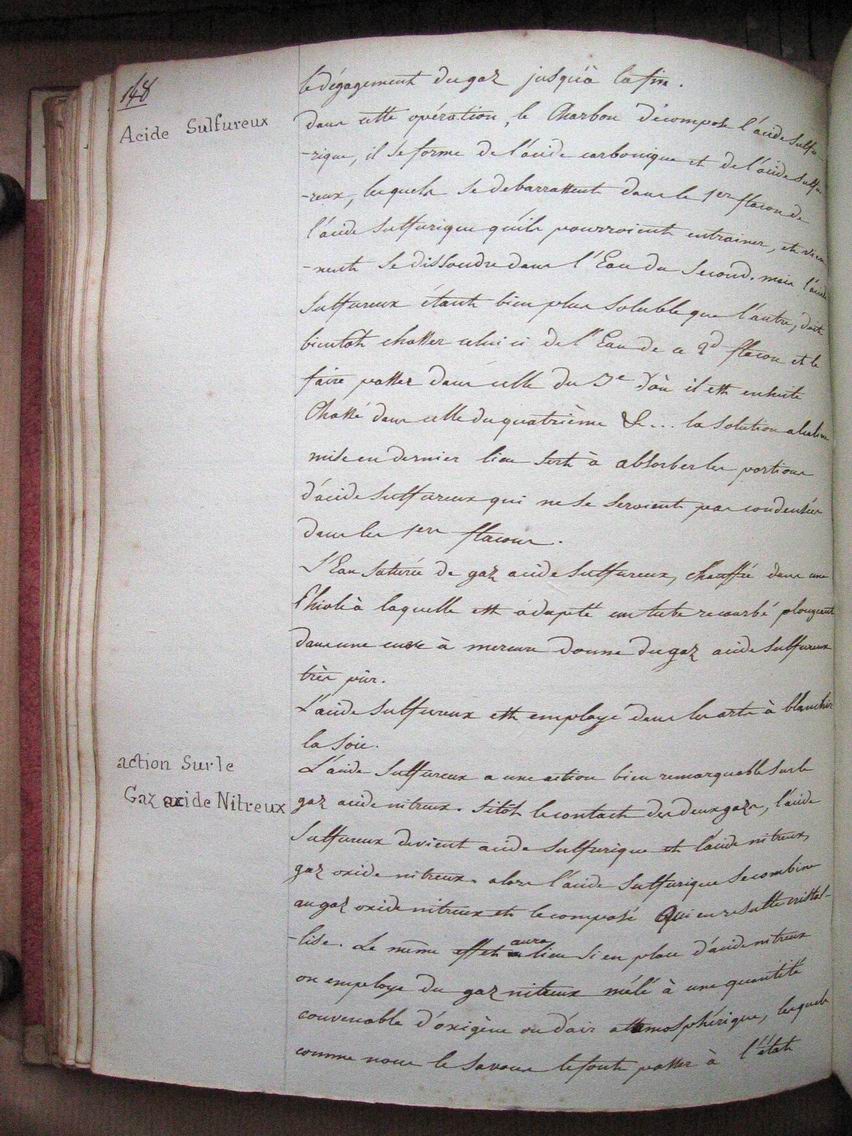 148
Acide Sulfureux
le dégagement du gaz jusqu'à la fin.
dans cette opération, le Charbon décompose l'acide sulfu
-rique, il se forme de l'acide carbonique et de l'acide sulfu
-reux, lesquels se debarrassent dans le 1er flacon de
l'acide sulfurique qu'ils pourroient entrainer, et vien
-nent se dissoudre dans l'Eau du Second. mais l'acide
Sulfureux étant bien plus soluble que l'autre, doit
bientot chasser celui ci de l'Eau de ce 2d flacon et le
faire passer dans celle du 3e d'où il est ensuite
Chassé dans celle du quatrième &... la solution alcaline
mise en dernier lieu sert à absorber les portions
d'acide sulfureux qui ne se seroient pas condensées
dans les 1ers flacons.
L'Eau saturée de gaz acide Sulfureux, chauffée dans une
phiole à laquelle est adapté un tube recourbé plongeant
dans une cuve à mercure donne du gaz acide sulfureux
très pur.
L'acide sulfureux est employé dans les arts à blanchir
la soie.
action Sur le
Gaz acide Nitreux
L'acide sulfureux a une action bien remarquable sur le
gaz acide nitreux. Sitot le contact des deux gazs, l'acide
Sulfureux devient acide sulfurique et l'acide nitreux,
gaz oxide nitreux. alors l'acide sulfurique se combine
au gaz oxide nitreux et le composé Qui en resulte cristal-
-lise. Le même effet aura lieu si en place d'acide nitreux
on employe du gaz nitreux mêlé à une quantité
convenable d'oxigène ou d'air atmosphérique, lesquels
comme nous le savons le font passer à l'état